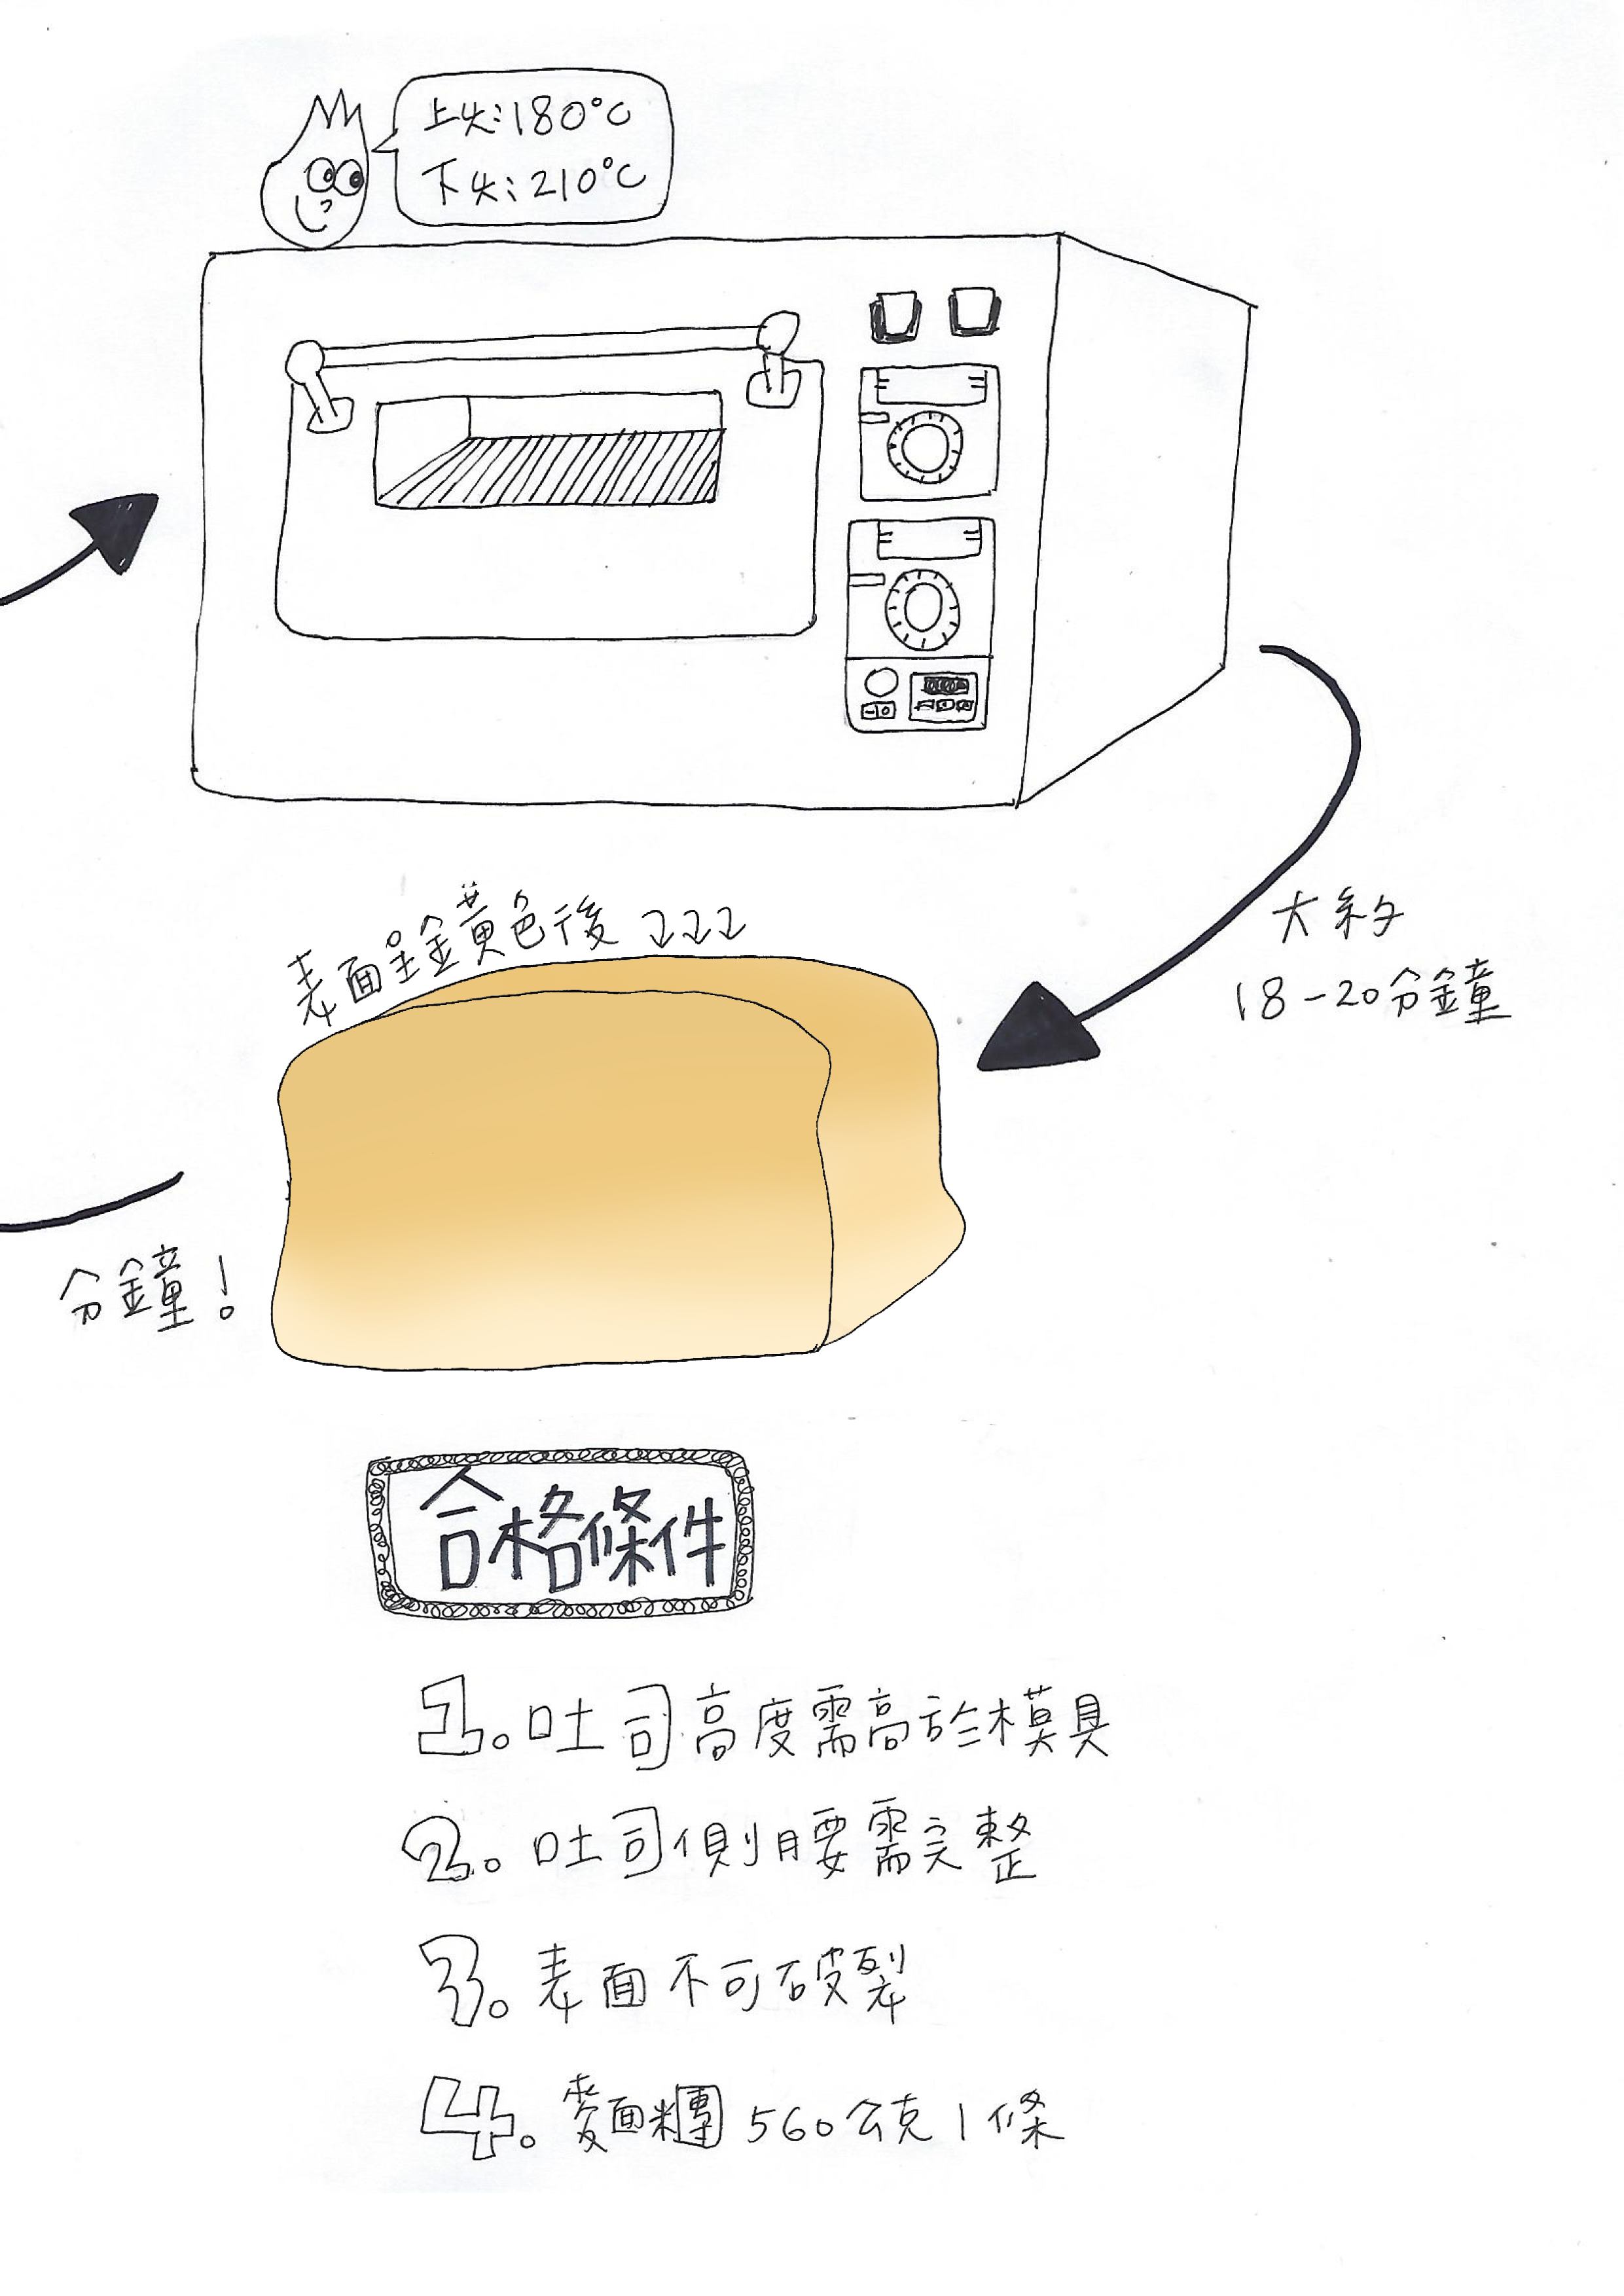 上火:180°C
下火:210°C
大約
18-20分鐘
表面呈金黃色後
分鐘!
合格條件
1.吐司高度需高於模具
2.吐司側腰需完整
3.表面不可破裂
4.麵糰560公克1條